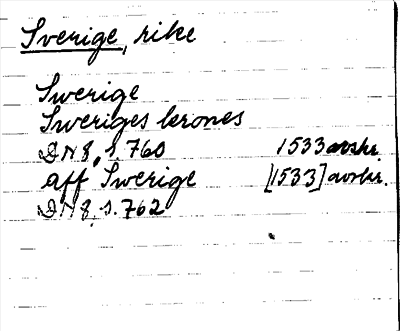 Sverige, rike
Swerige
Sweriges krones
DN 8, s. 760 1533 avskr.
aff Swerige [1533] avskr.
DN 8, s. 762